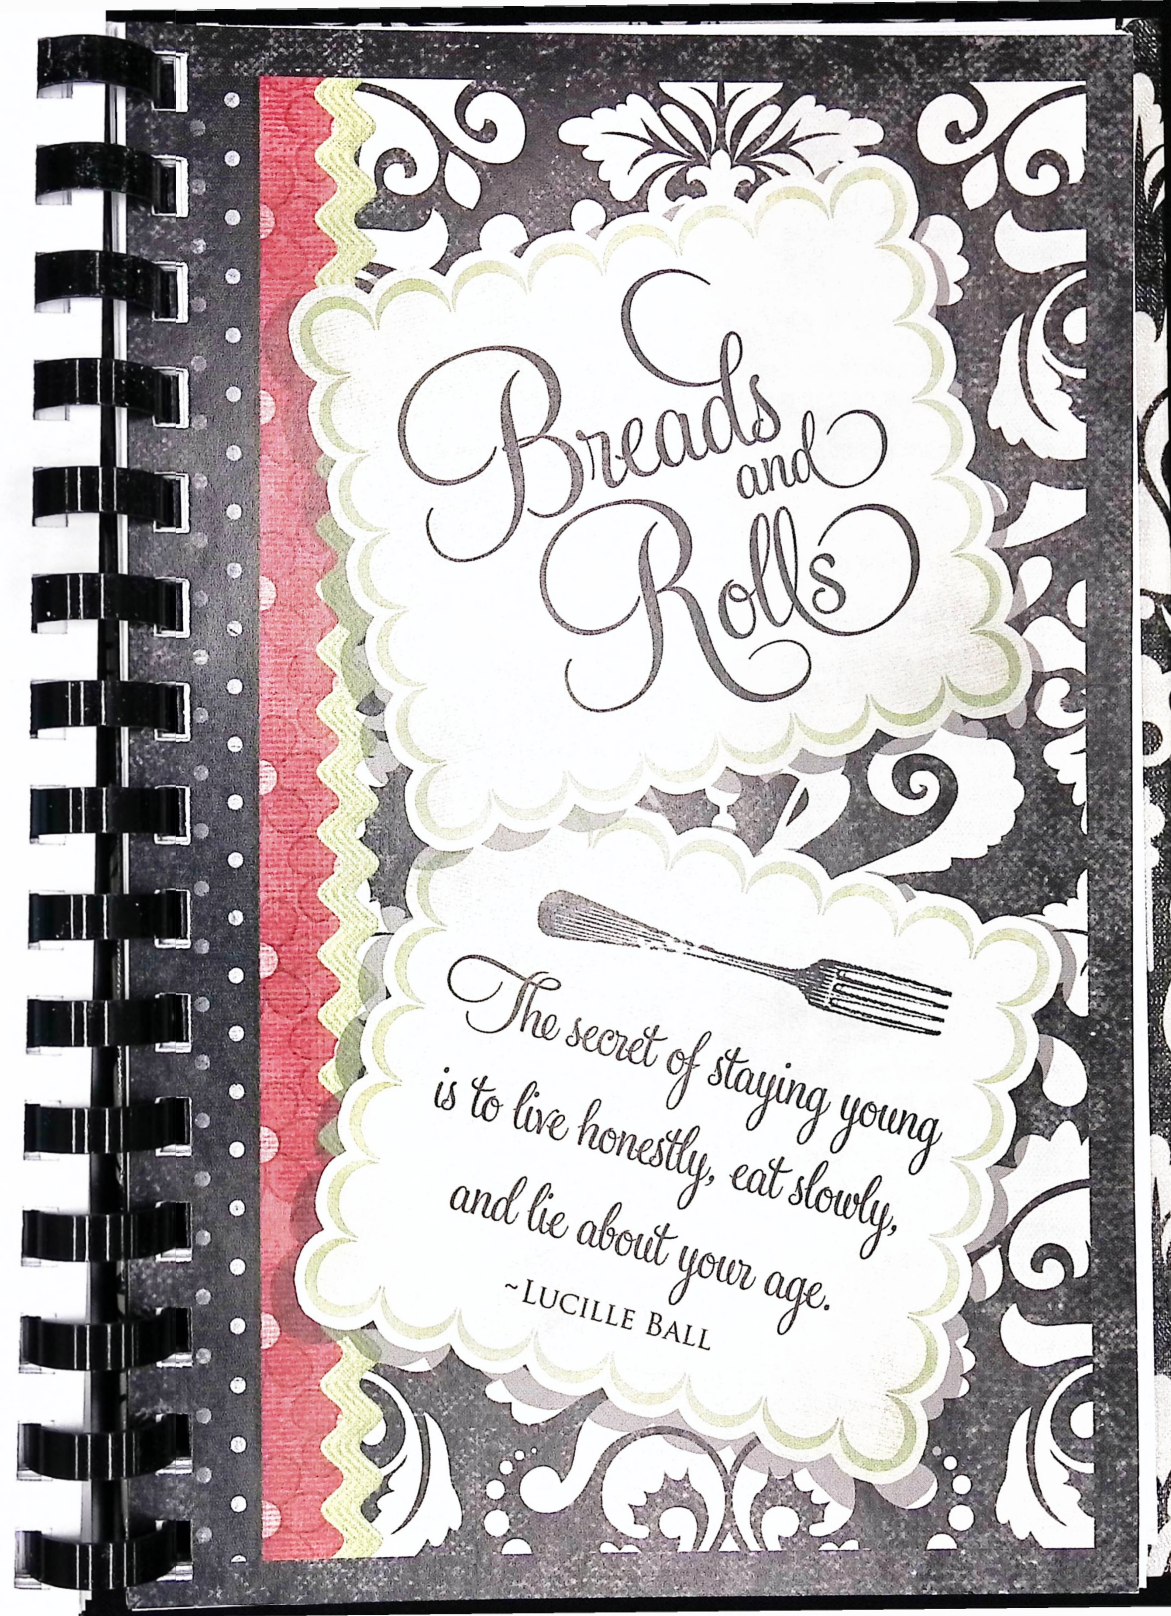 Breads
and
Rolls
The secret of staying young
is to live honestly, eat slowly,
and lie about your age.
~LUCILLE BALL